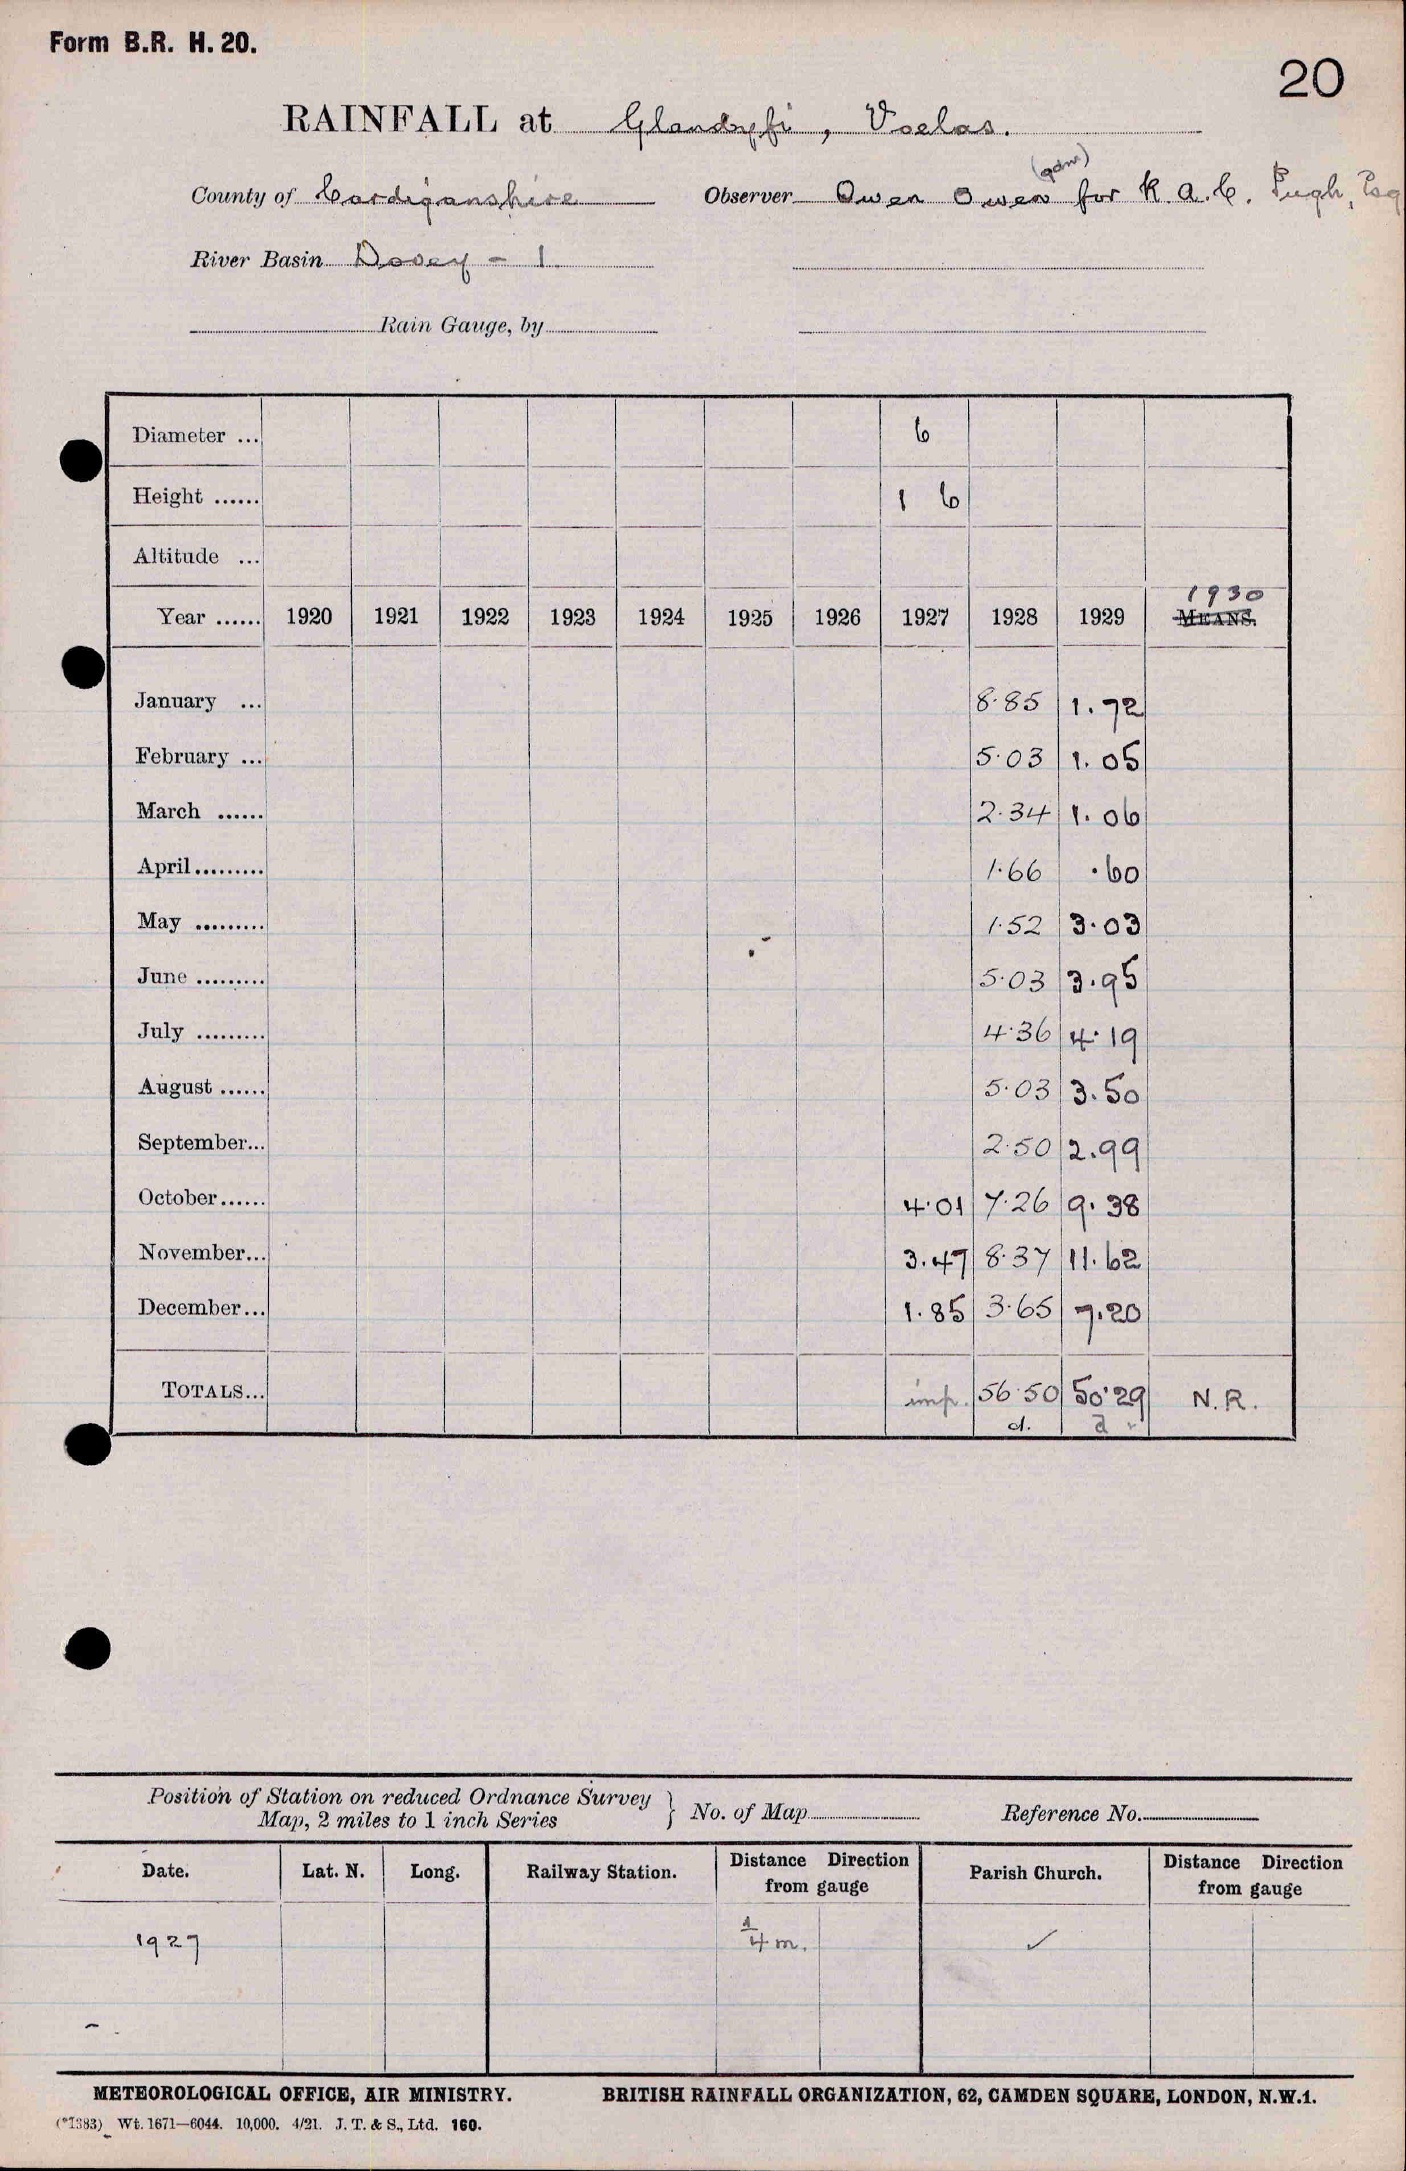 Form B.R. H. 20.
20
RAINFALL at Glandyfi, Voelas.
(gdnr)
County of Cardiganshire Observer Owen Owen for R. A. C. Pugh, Esq
River Basin Dovey - 1
Rain Gauge, by
Diameter ... 6
Height ...... 1 6
Altitude ...
1930
Year ...... 1920 1921 1922 1923 1924 1925 1926 1927 1928 1929 MEANS.
January ... 8.85 1.72
February ... 5.03 1.05
March ...... 2.34 1.06
April......... 1.66 .60
May ......... 1.52 3.03
June ......... 5.03 3.95
July ......... 4.36 4.19
August ...... 5.03 3.50
September... 2.50 2.99
October...... 4.01 7.26 9.38
November... 3.47 8.37 11.62
December... 1.85 3.65 7.20
TOTALS... imp. 56.50 50.29 N.R.
d. d
Position of Station on reduced Ordnance Survey
Map, 2 miles to 1 inch Series } No. of Map Reference No.
Date. Lat. N. Long. Railway Station. Distance Direction from gauge Parish Church. Distance Direction from gauge
1927 1/4 m. ✓
METEOROLOGICAL OFFICE, AIR MINISTRY. BRITISH RAINFALL ORGANIZATION, 62, CAMDEN SQUARE, LONDON, N.W.1.
(*1383) Wt. 1671—6044. 10,000. 4/21. J. T. & S., Ltd. 160.